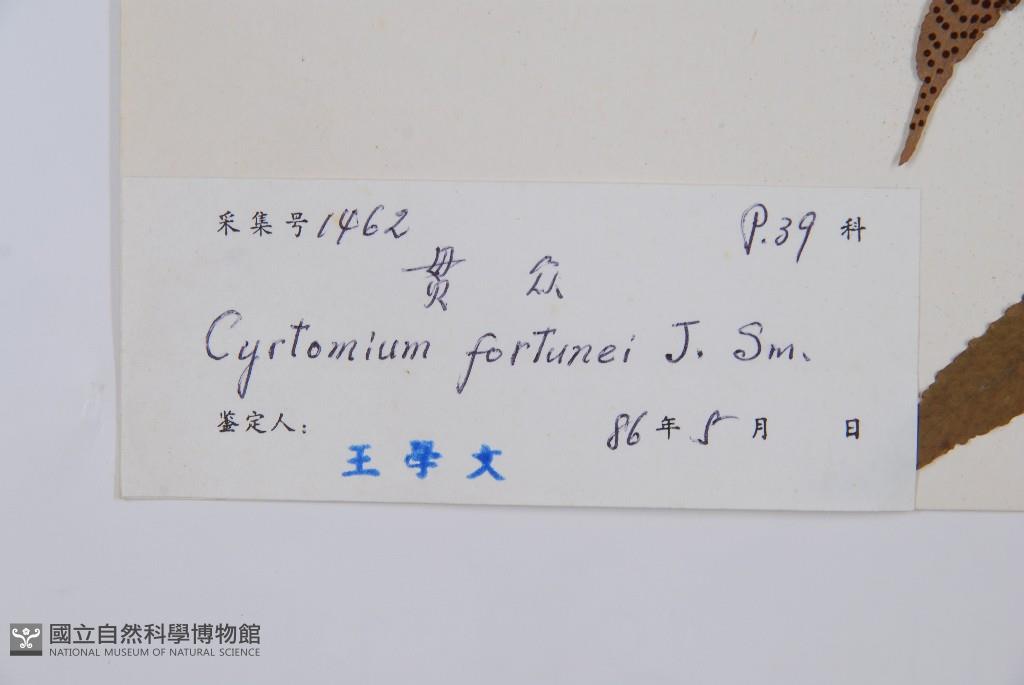 采集号1462 P.39 科
贯 众
Cyrtomium fortunei J. Sm.
鉴定人: 86年5月 日
王學文
國立自然科學博物館
NATIONAL MUSEUM OF NATURAL SCIENCE